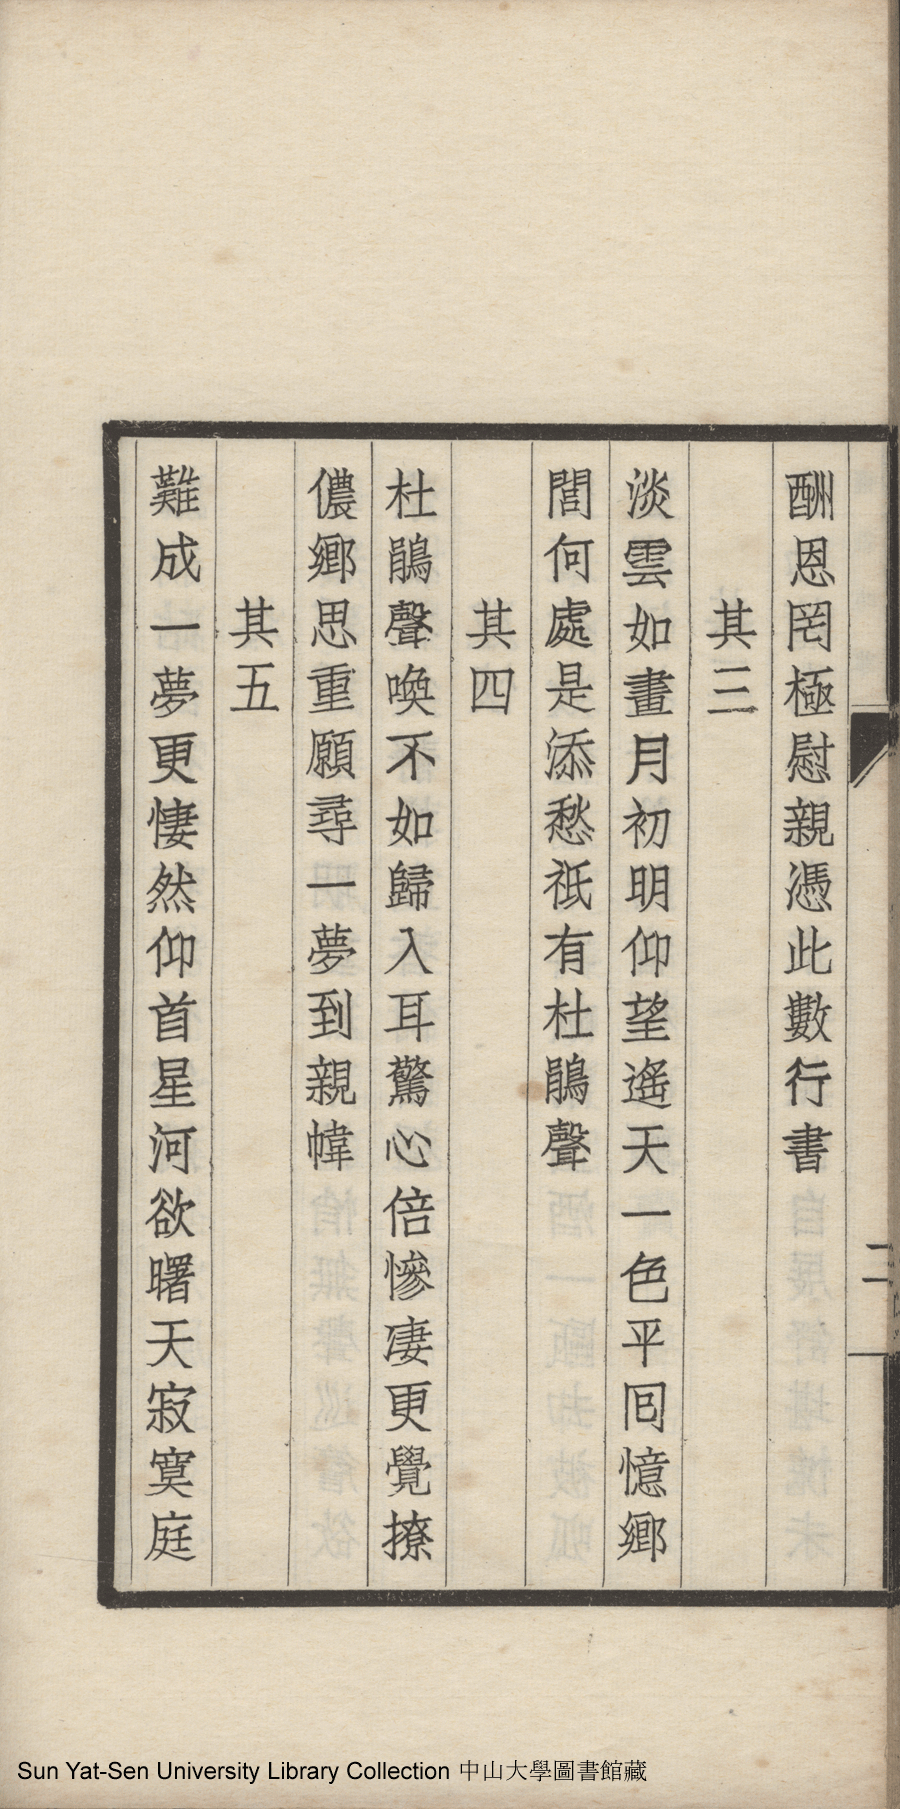 酬恩罔極慰親憑此數行書
其三
淡雲如畫月初明仰望遙天一色平囘憶鄉
閭何處是添愁祇有杜鵑聲
其四
杜鵑聲喚不如歸入耳驚心倍慘凄更覺撩
儂鄉思重願尋一夢到親幃
其五
難成一夢更悽然仰首星河欲曙天寂寞庭
二
Sun Yat-Sen University Library Collection 中山大學圖書館藏